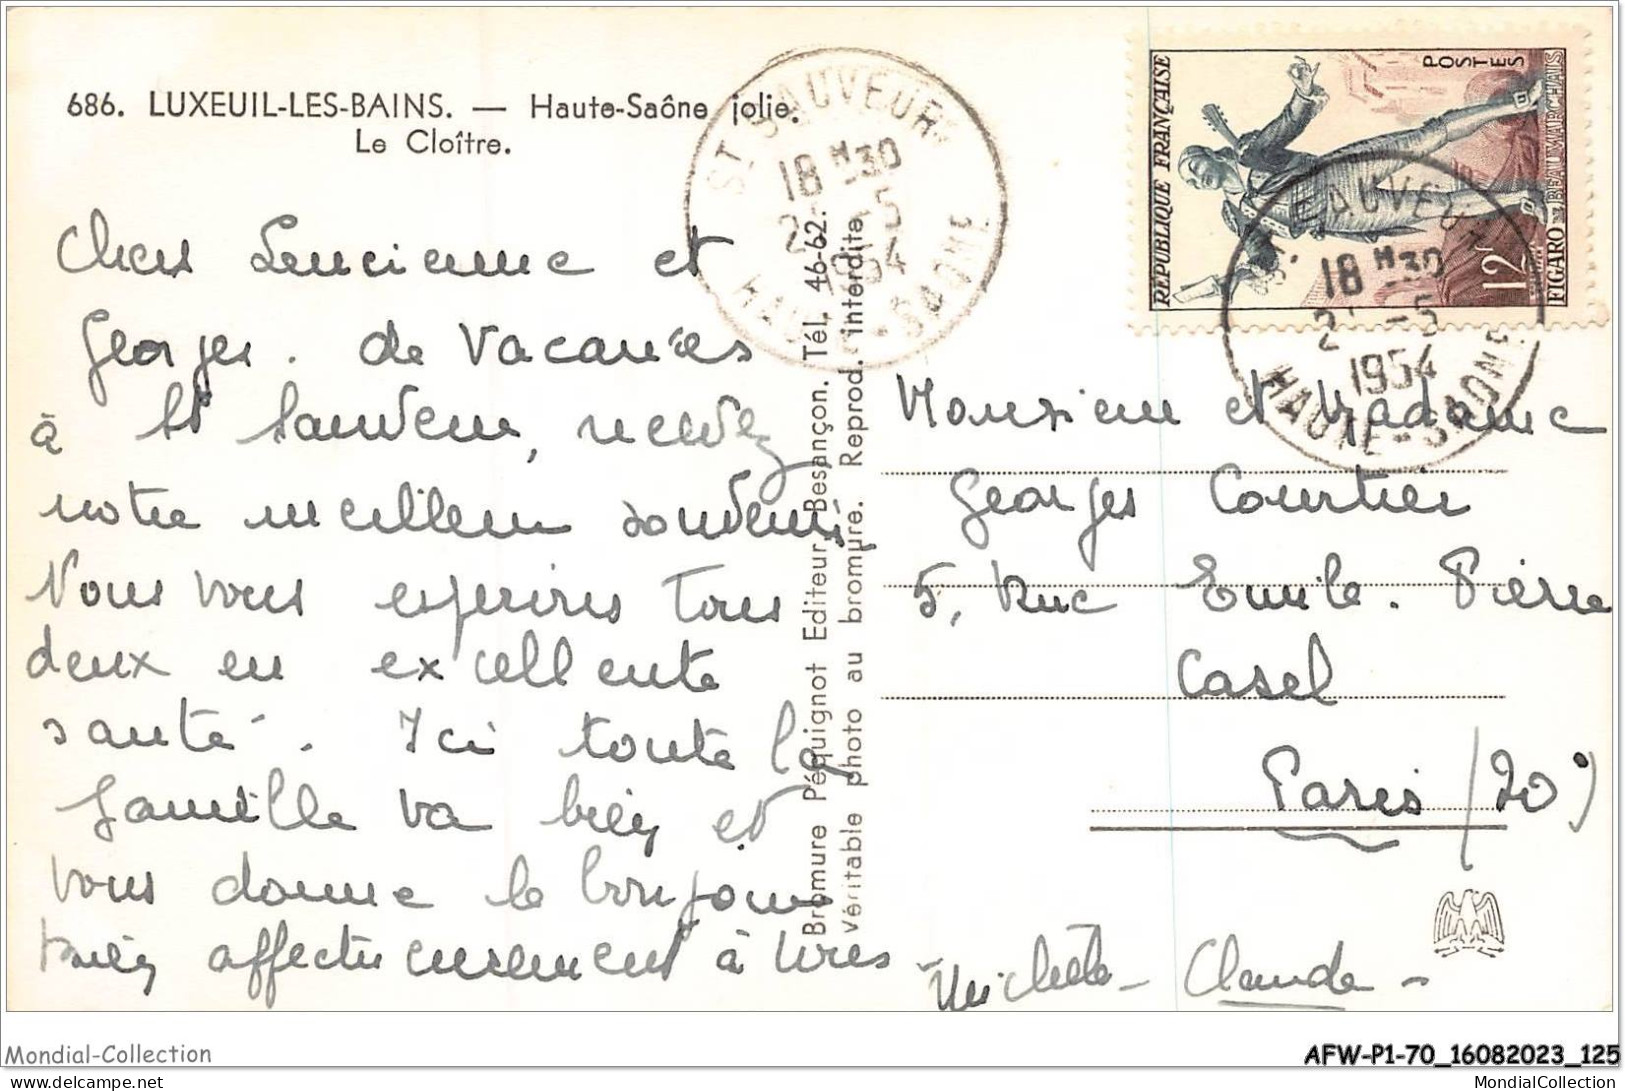 686. LUXEUIL-LES-BAINS. — Haute-Saône jolie.
Le Cloître.
Chers Lucienne et
Georges. de Vacances
à St Sauveur, recevez
notre meilleur souvenir,
Nous vous espérons tous
deux en excellente
santé. Ici toute la
famille va bien et
vous donne le bonjour
bien affectueusement à tous
Michèle - Claude -
Bromure Péquignot Editeur, Besançon. Tél. 46-62.
Véritable photo au bromure. Reprod. interdite
ST SAUVEUR
18 H 30
2 -5
1954
HAUTE-SAONE
REPUBLIQUE FRANÇAISE
POSTES
12F
FIGARO - BEAUMARCHAIS
SAUVEUR
18 H 30
2 -5
1954
HAUTE-SAONE
Monsieur et Madame
Georges Courtier
5, Rue Emile. Pierre
Casel
Paris (20°)
Mondial-Collection
AFW-P1-70_16082023_125
delcampe.net
MondialCollection